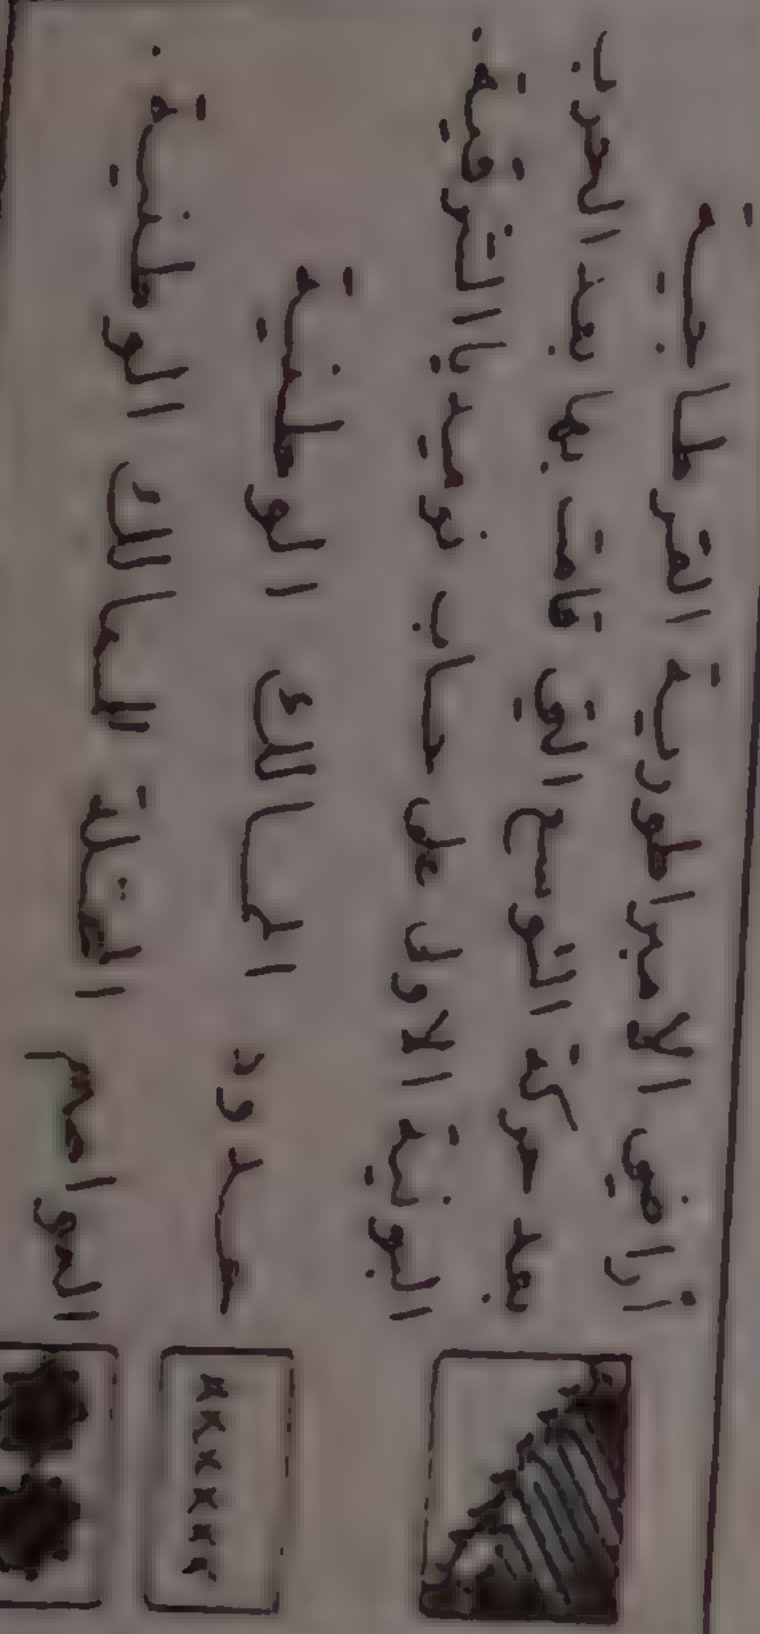 أراضي الامبراطورية القرطاجية
بعد حركة التوسع التي قامت بها بعد الحرب
البونية الاولى على حساب نوميديا الشرقية .
حدود الممالك الوطنية
العواصم المحتملة للممالك الوطنية .